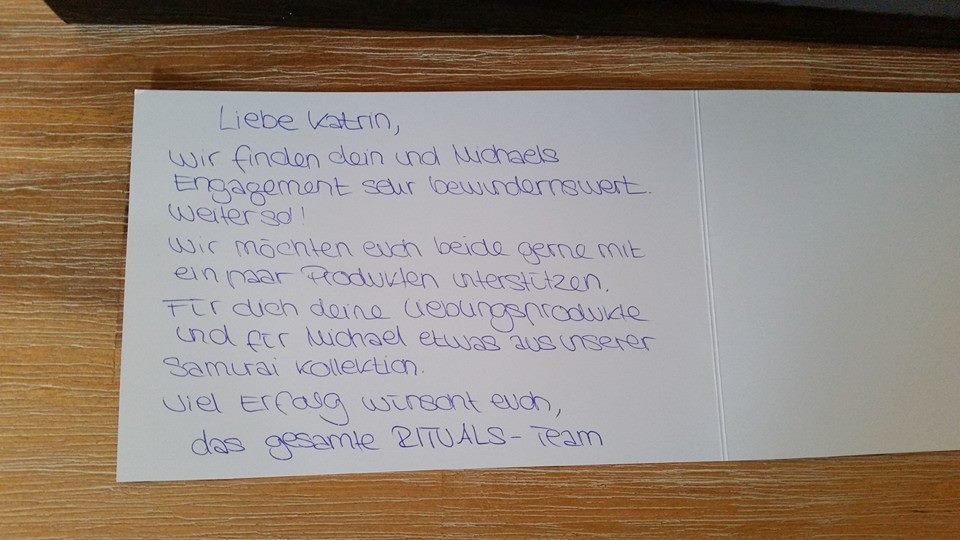 Liebe Katrin,
wir finden dein und Michaels
Engagement sehr bewundernswert.
Weiter so!
Wir möchten euch beide gerne mit
ein paar Produkten unterstützen.
Für dich deine Lieblingsprodukte
und für Michael etwas aus unserer
Samurai Kollektion.
Viel Erfolg wünscht euch,
das gesamte RITUALS-Team